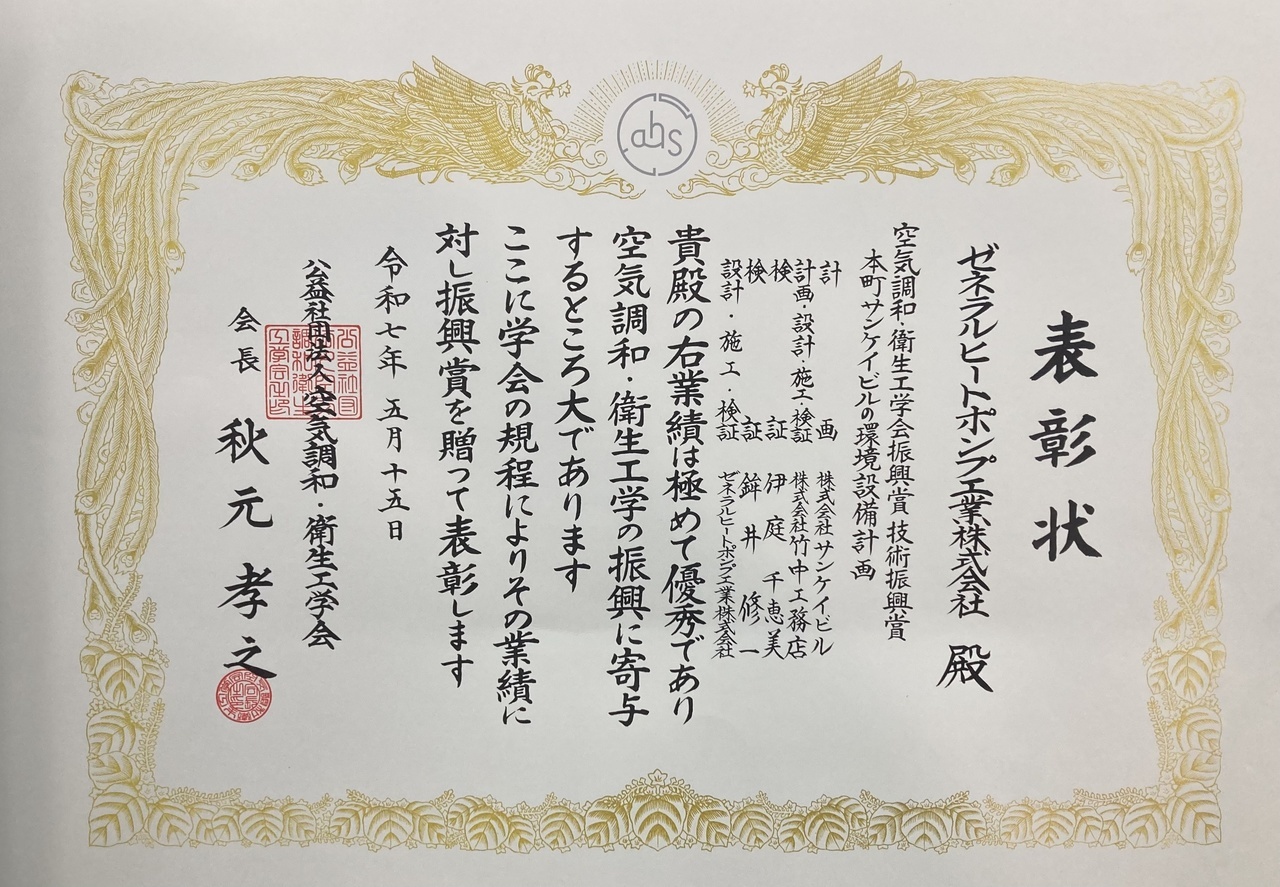 ahs
表彰状
ゼネラルヒートポンプ工業株式会社 殿
空気調和・衛生工学会振興賞 技術振興賞
本町サンケイビルの環境設備計画
計画 株式会社サンケイビル
計画・設計・施工・検証 株式会社竹中工務店
検証 伊庭千恵美
検証 鉾井修一
設計・施工・検証 ゼネラルヒートポンプ工業株式会社
貴殿の右業績は極めて優秀であり
空気調和・衛生工学の振興に寄与
するところ大であります
ここに学会の規程によりその業績に
対し振興賞を贈って表彰します
令和七年 五月十五日
公益社団法人空気調和・衛生工学会
会長 秋元孝之